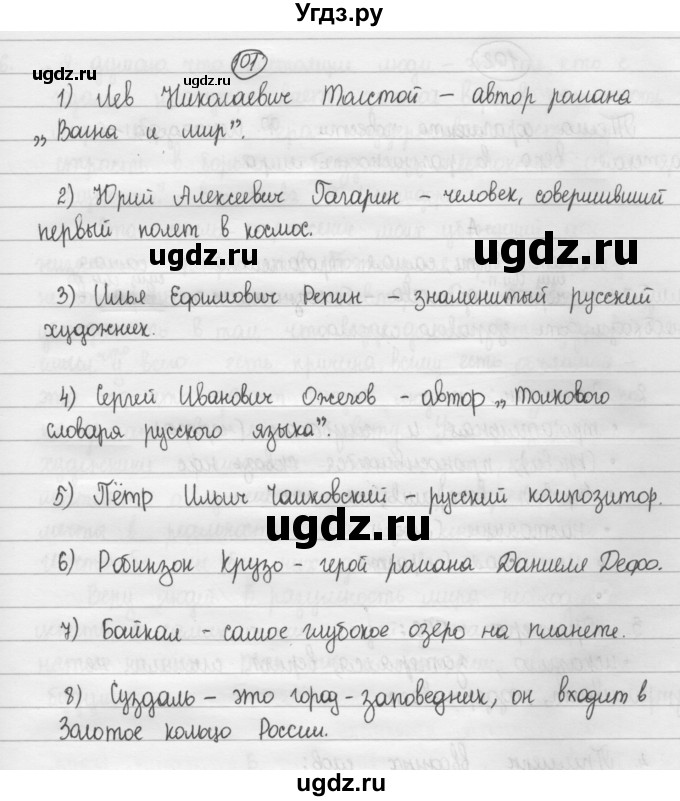 Угдз.ру
101
ugdz.ru
1) Лев Николаевич Толстой – автор романа
„Война и мир”.
2) Юрий Алексеевич Гагарин – человек, совершивший
первый полет в космос.
ugdz.ru
ugdz.ru
3) Илья Ефимович Репин – знаменитый русский
художник.
4) Сергей Иванович Ожегов – автор „Толкового
словаря русского языка”.
ugdz.ru
5) Пётр Ильич Чайковский – русский композитор.
ugdz.ru
6) Робинзон Крузо – герой романа Даниеля Дефо.
7) Байкал – самое глубокое озеро на планете.
ugdz.ru
8) Суздаль – это город-заповедник, он входит в
Золотое кольцо России.
ugdz.ru
ugdz.ru